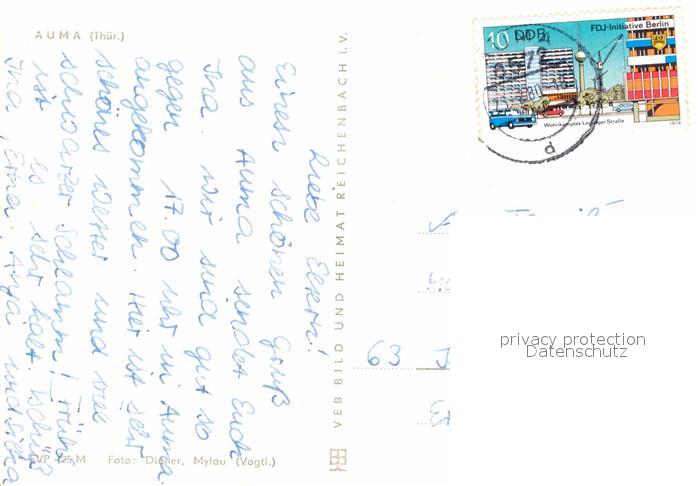 AUMA (Thür.)
Liebe Eltern!
Einen schönen Gruß
aus Auma sendet Euch
Ina. Wir sind gut so
gegen 17.00 Uhr in Auma
angekommen. Hier ist sehr
schönes Wetter und viel
schwarzer Schlamm! Früh
ist es sehr kalt. Tschüß
Ina, Erna, Anja und
EVP -,25 M Foto: Diener, Mylau (Vogtl.)
VEB BILD UND HEIMAT REICHENBACH i. V.
10 DDR
FDJ-Initiative Berlin
Wohnkomplex Leipziger Straße
1978
d
63
privacy protection
Datenschutz